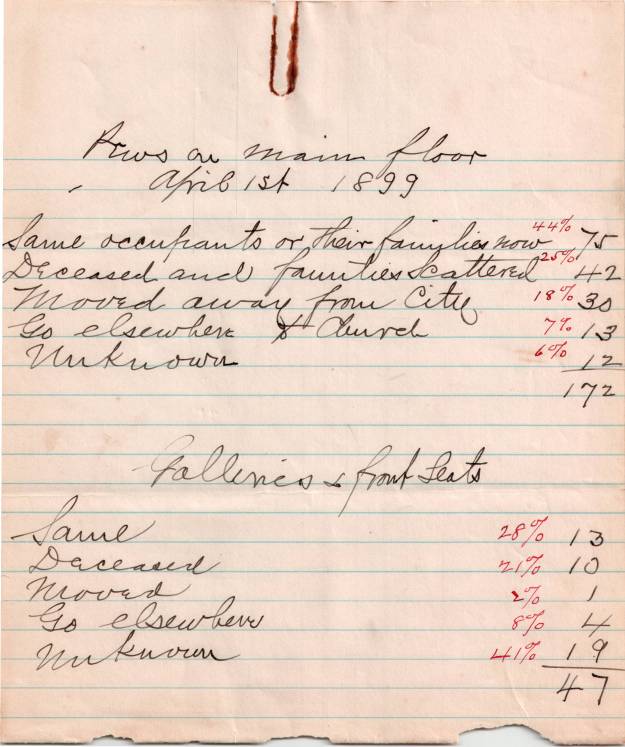 Pews on main floor
April 1st 1899
Same occupants or their families now 44% 75
Deceased and families scattered 25% 42
Moved away from City 18% 30
Go elsewhere to Church 7% 13
Unknown 6% 12
172
Galleries & front Seats
Same 28% 13
Deceased 21% 10
Moved 2% 1
Go elsewhere 8% 4
Unknown 41% 19
47